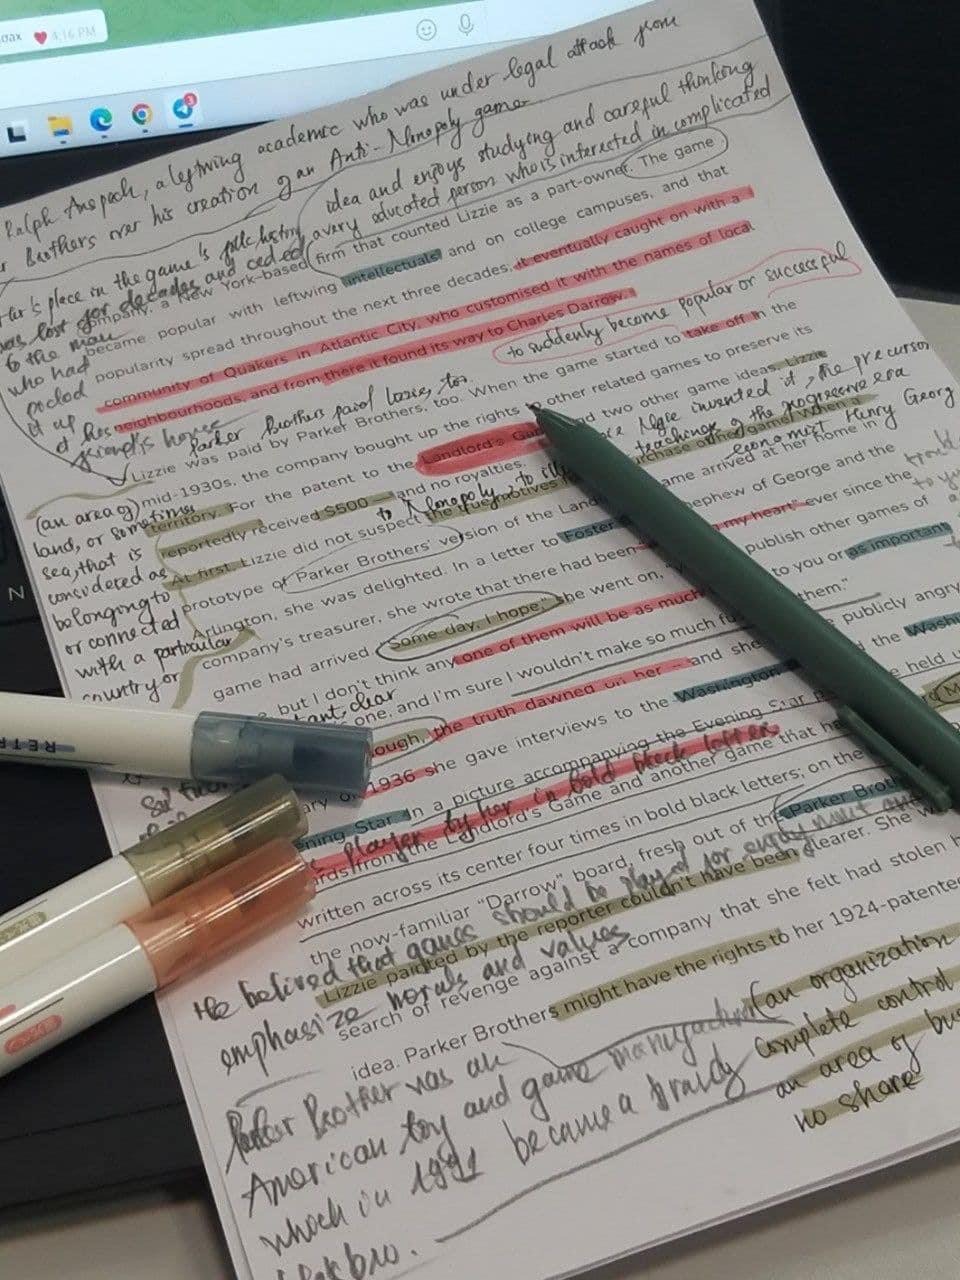 4:16 PM
3
Ralph Anspach, a leftwing academic who was under legal attack from
Brothers over his creation of an Anti-Monopoly game
idea and enjoys studying and careful thinking
a very educated person who is interested in complicated
place in the game's folk history
was lost for decades and ceded
to the man
who had
pocked
it up
at his
friend's house
company, a New York-based firm that counted Lizzie as a part-owner. The game
became popular with leftwing intellectuals and on college campuses, and that
popularity spread throughout the next three decades. It eventually caught on with a
community of Quakers in Atlantic City, who customised it with the names of local
neighbourhoods, and from there it found its way to Charles Darrow.
to suddenly become popular or successful
Parker Brothers paid Lizzie, too
Lizzie was paid by Parker Brothers, too. When the game started to take off in the
mid-1930s, the company bought up the rights to other related games to preserve its
territory. For the patent to the Landlord's Ga nd two other game ideas, Lizzie
reportedly received $500 — and no royalties.
invented it, the precursor
to Monopoly, to
teachings of the progressive era
economist Henry George
(an area of)
land, or sometimes
sea, that is
considered as
belonging to
or connected
with a particular
country or
At first, Lizzie did not suspect the true motives rchase of her game. When a
prototype of Parker Brothers' version of the Land ame arrived at her home in
Arlington, she was delighted. In a letter to Foster ephew of George and the
company's treasurer, she wrote that there had been my heart" ever since the
game had arrived. "Some day, I hope," she went on, publish other games of
but I don't think any one of them will be as much to you or as important
one, and I'm sure I wouldn't make so much fu them."
ough, the truth dawned on her — and she publicly angry
1936 she gave interviews to the Washington the Wash
ning Star In a picture accompanying the Evening Star held u
rds from the Landlord's Game and another game that he
written across its center four times in bold black letters; on the
the now-familiar "Darrow" board, fresh out of the Parker Broth
Lizzie painted by the reporter couldn't have been clearer. She w
search of revenge against a company that she felt had stolen h
idea. Parker Brothers might have the rights to her 1924-patente
in bold black letters
He believed that games should be played for
emphasize morals and values
Parker Brother was an
American toy and game manufacturer
which in 1991 became a brand
(an organization
complete control
an area of bus
no share
RETR
N